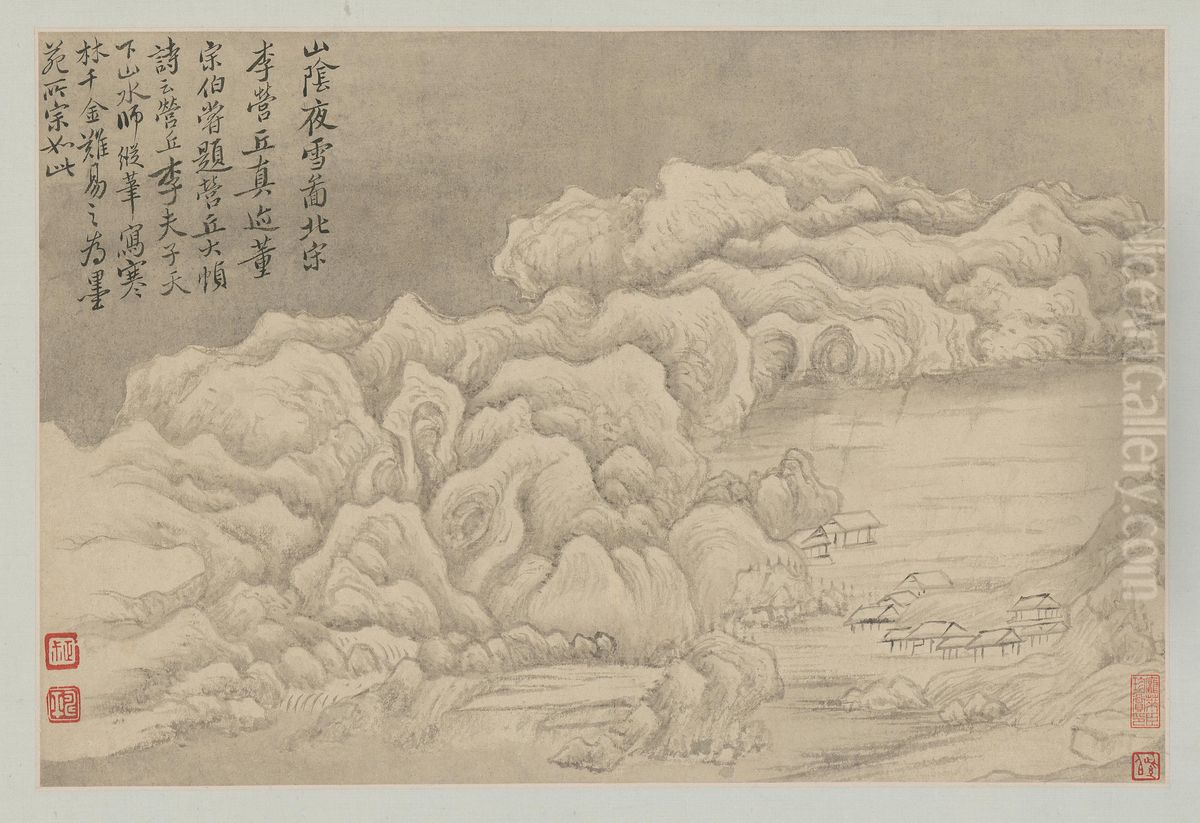 山陰夜雪啚北宋
李營丘真迹董
宗伯嘗題營丘大幀
詩云營丘李夫子天
下山水師縱筆寫寒
林千金難易之為墨
苑所宗如此
AliceArtGallery.com